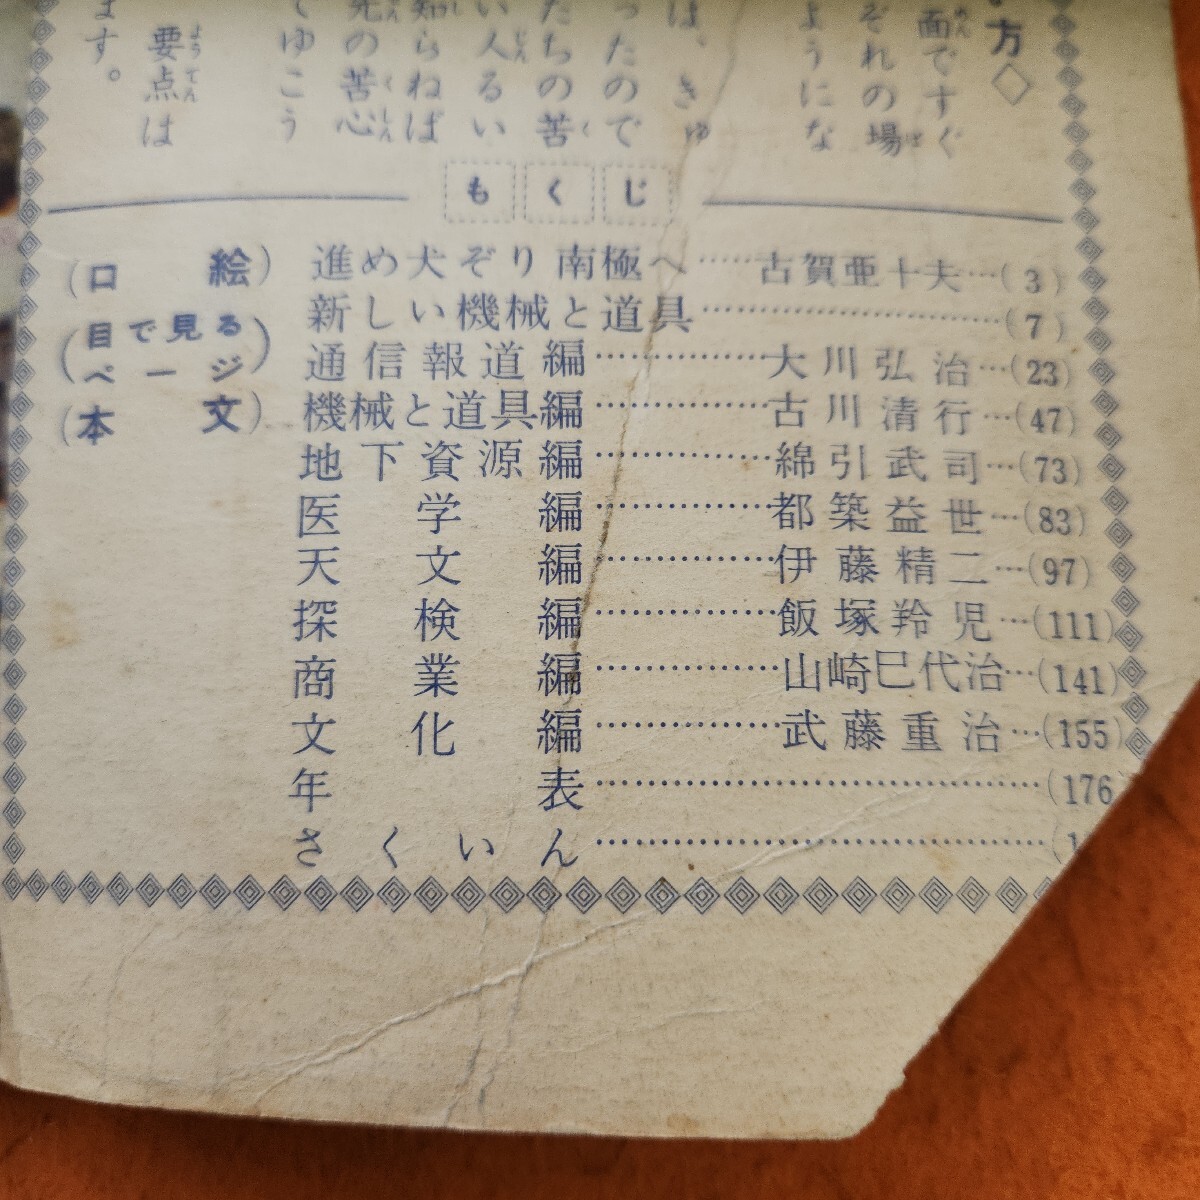 方◇
面ですぐ
ぞれの場
ようにな
は、きゅ
ったので
たちの苦
い人るい
知らねば
死の苦心
てゆこう
要点は
ます。
もくじ
(口絵) 進め犬ぞり南極へ……古賀亜十夫…(3)
(目で見るページ) 新しい機械と道具…………………………(7)
(本文) 通信報道編……………大川弘治…(23)
機械と道具編……………古川清行…(47)
地下資源編……………綿引武司…(73)
医学編……………都築益世…(83)
天文編……………伊藤精二…(97)
探検編……………飯塚羚児…(111)
商業編……………山崎巳代治…(141)
文化編……………武藤重治…(155)
年表…………………………………(176
さくいん…………………………………(1